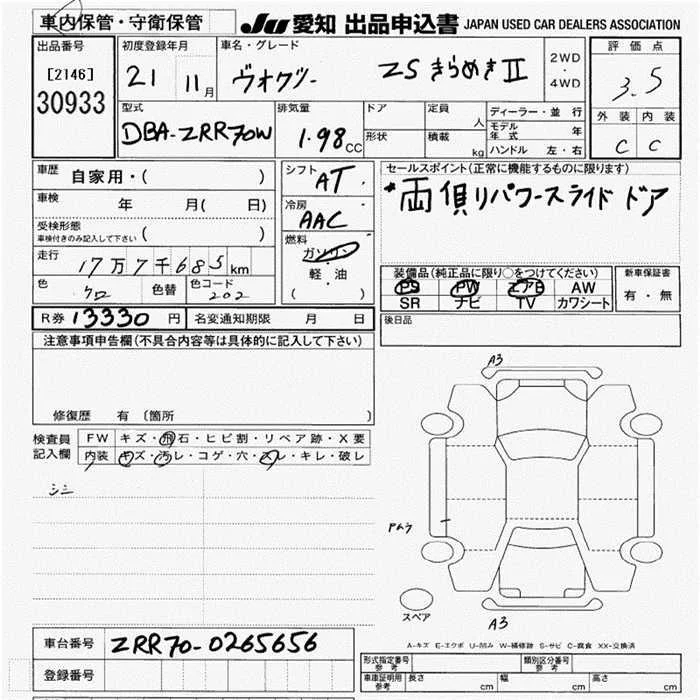 車内保管・守衛保管
JU 愛知 出品申込書 JAPAN USED CAR DEALERS ASSOCIATION
出品番号
[2146]
30933
初度登録年月
21 11月
車名・グレード
ヴォクシー ZS きらめきⅡ
2WD
・
4WD
評価点
3.5
型式
DBA-ZRR70W
排気量
1.98 CC
ドア
形状
定員 人
積載 kg
ディーラー・並行
モデル年式 年
ハンドル 左・右
外装 内装
C C
車歴 自家用・( )
車検 年 月( 日)
受検形態
車検付きのみ記入して下さい ( )
走行 17万7千685km
色 クロ 色替 色コード 202
シフト AT
冷房 AAC
燃料
ガソリン
軽・油
( )
セールスポイント(正常に機能するものに限ります)
*両側リパワースライドドア
装備品(純正品に限り○をつけてください)
PS PW エアB AW
SR ナビ TV カワシート
新車保証書
有・無
R券 13330円 名変通知期限 月 日
後日品
注意事項申告欄(不具合内容等は具体的に記入して下さい)
修復歴 有 〔箇所 〕
検査員記入欄
FW キズ・飛石・ヒビ割・リペア跡・X要
内装 キズ・汚レ・コゲ・穴・スレ・キレ・破レ
シミ
A3
Pムラ
スペア
A3
A-キズ E-エクボ U-凹ム W-補修跡 S-サビ C-腐食 XX-交換済
車台番号 ZRR70-0265656
登録番号
形式指定番号 参考 類別区分番号 参考
車庫証明用 参考 長さ cm 幅 cm 高さ cm